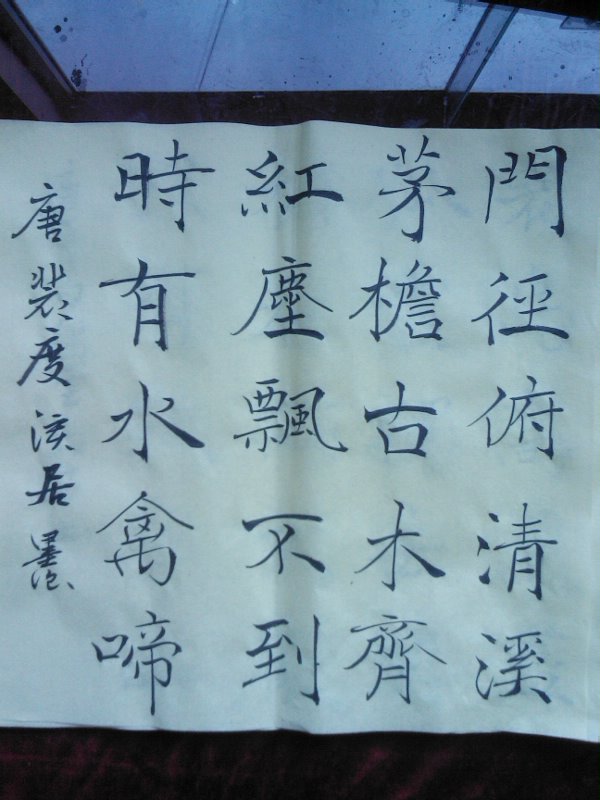 門徑俯清溪
茅檐古木齊
紅塵飄不到
時有水禽啼
唐裴度溪居墨